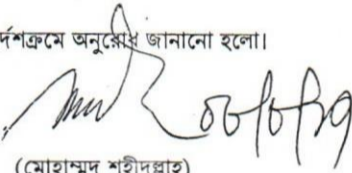 র্দেশক্রমে অনুরোধ জানানো হলো।
(মোহাম্মদ শহীদুল্লাহ)